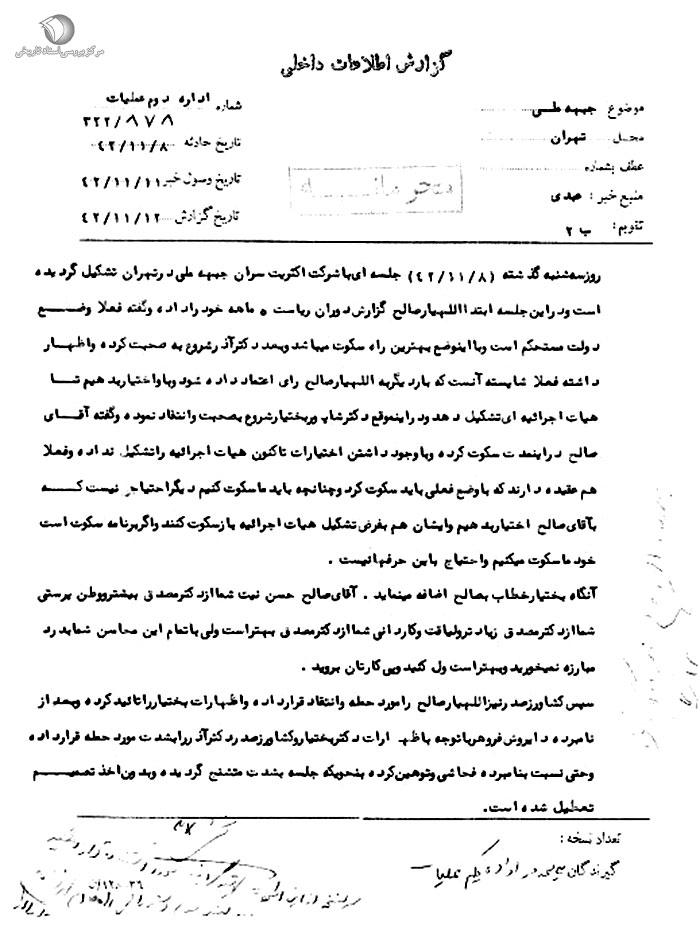 مرکز بررسی اسناد تاریخی
گزارش اطلاعات داخلی
موضوع جبهه ملی
محل تهران
عطف بشماره
منبع خبر : عبدی
تقویم : ب ۲
شماره اداره دوم عملیات
۳۲۲/۸۷۸
تاریخ حادثه ۴۲/۱۱/۸
تاریخ وصول خبر ۴۲/۱۱/۱۱
تاریخ گزارش ۴۲/۱۱/۱۲
محرمانه
روز سه شنبه گذشته (۴۲/۱۱/۸) جلسه ای با شرکت اکثریت سران جبهه ملی در تهران تشکیل گردیده
است و در این جلسه ابتدا اللهیار صالح گزارش دوران ریاست ۵ ماهه خود را داده و گفته فعلا وضع
دولت مستحکم است و با اینوضع بهترین راه سکوت میباشد و بعد دکتر آذر شروع به صحبت کرده و اظهار
داشته فعلا شایسته آنست که بار دیگر به اللهیار صالح رای اعتماد داده شود و باو اختیار بدهیم تا
هیات اجرائیه ای تشکیل دهد و در اینموقع دکتر شاپور بختیار شروع بصحبت و انتقاد نموده و گفته آقای
صالح در اینمدت سکوت کرده و با وجود داشتن اختیارات تاکنون هیات اجرائیه را تشکیل نداده و فعلا
هم عقیده دارند که با وضع فعلی باید سکوت کرد و چنانچه باید ما سکوت کنیم دیگر احتیاجی نیست که
بآقای صالح اختیار بدهیم و ایشان هم بفرض تشکیل هیات اجرائیه باز سکوت کنند و اگر برنامه سکوت است
خود ما سکوت میکنیم و احتیاج باین حرفها نیست .
آنگاه بختیار خطاب بصالح اضافه مینماید . آقای صالح حسن نیت شما از دکتر مصدق بیشتر و وطن پرستی
شما از دکتر مصدق زیادتر و لیاقت و کاردانی شما از دکتر مصدق بهتر است ولی با تمام این محاسن شما بدرد
مبارزه نمیخورید و بهتر است ول کنید و پی کارتان بروید .
سپس کشاورز صدر نیز اللهیار صالح را مورد حمله و انتقاد قرار داده و اظهارات بختیار را تائید کرده و بعد از
نامبرده داریوش فروهر با توجه باظهارات دکتر بختیار و کشاورز صدر دکتر آذر را بشدت مورد حمله قرار داده
و حتی نسبت بنامبرده فحاشی و توهین کرده بنحویکه جلسه بشدت متشنج گردیده و بدون اخذ تصمیم
تعطیل شده است .
تعداد نسخه :
گیرندگان